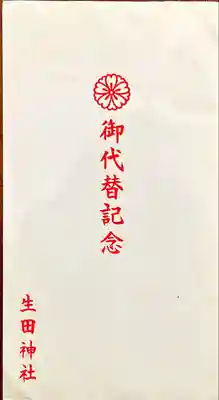 御代替記念
生田神社